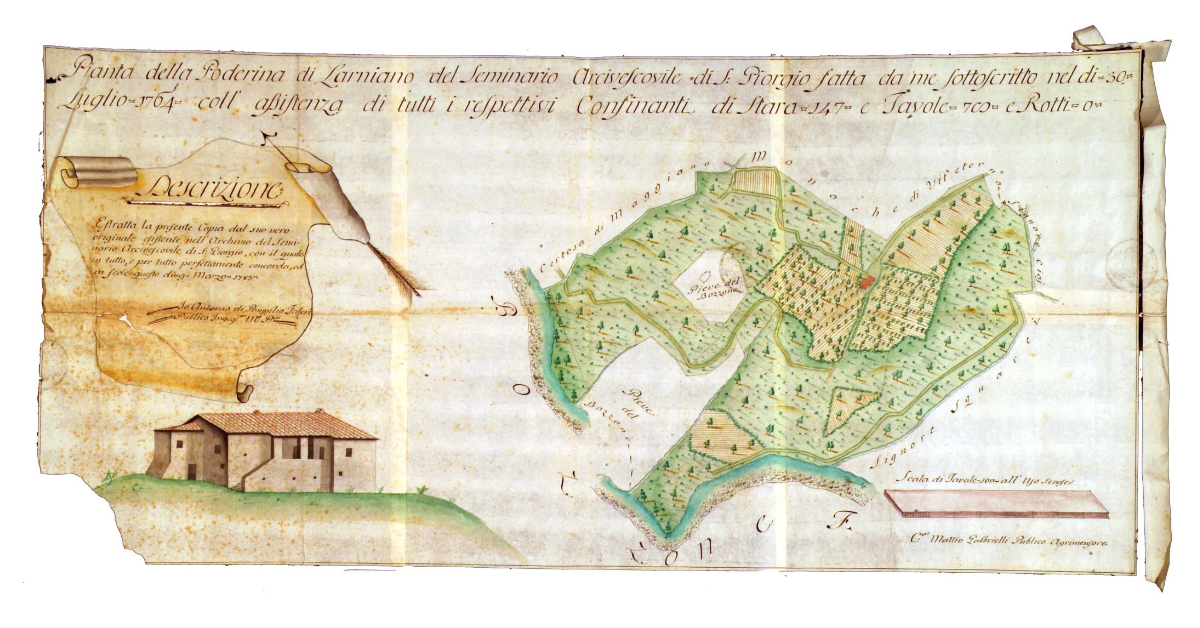 Pianta della Poderina di Larniano del Seminario Arcivescovile di S. Giorgio fatta da me sottoscritto nel di=30=
Luglio=1764= coll' assistenza di tutti i respettivi Confinanti di Stara=147= e Tavole= e Rotti=0=
Descrizione
Estratta la presente Copia dal suo vero
originale essistente nell'Archivio del Semi=
nario Arcivescovile di S. Giorgio, con il quale
in tutto, e per tutto perfettamente concorda, ed
in fede questo di Marzo
Io Antonio di
Publico
Certosa di Maggiano
Monache di Vi
Signore
Pieve del
Bozzone
Pieve
del
Bozzone
Signore
BOZZONE F.
Scala di Tavole 100 all' Uso Senese
Mattio Gabrielli Publico Agrimensore